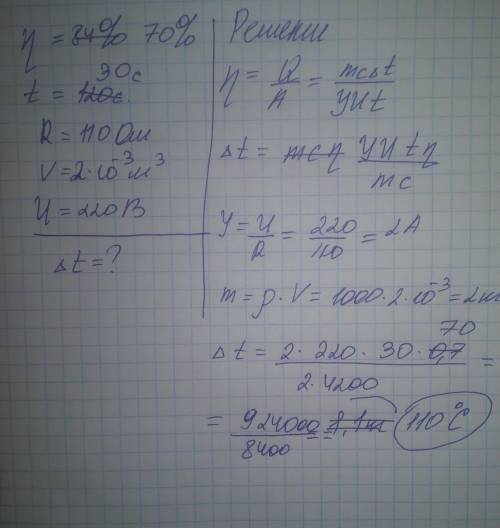 η = 84% 70%
30с
t = 120с.
R = 110 Ом
V = 2·10⁻³ м³
U = 220 В
Δt = ?
Решение
η = Q/A = mcΔt/YUt
Δt = mcη YUtη/mc
Y = U/R = 220/110 = 2A
m = ρ·V = 1000·2·10⁻³ = 2кг
70
Δt = 2·220·30·0,7/2·4200 =
= 924000/8400 = 110°C